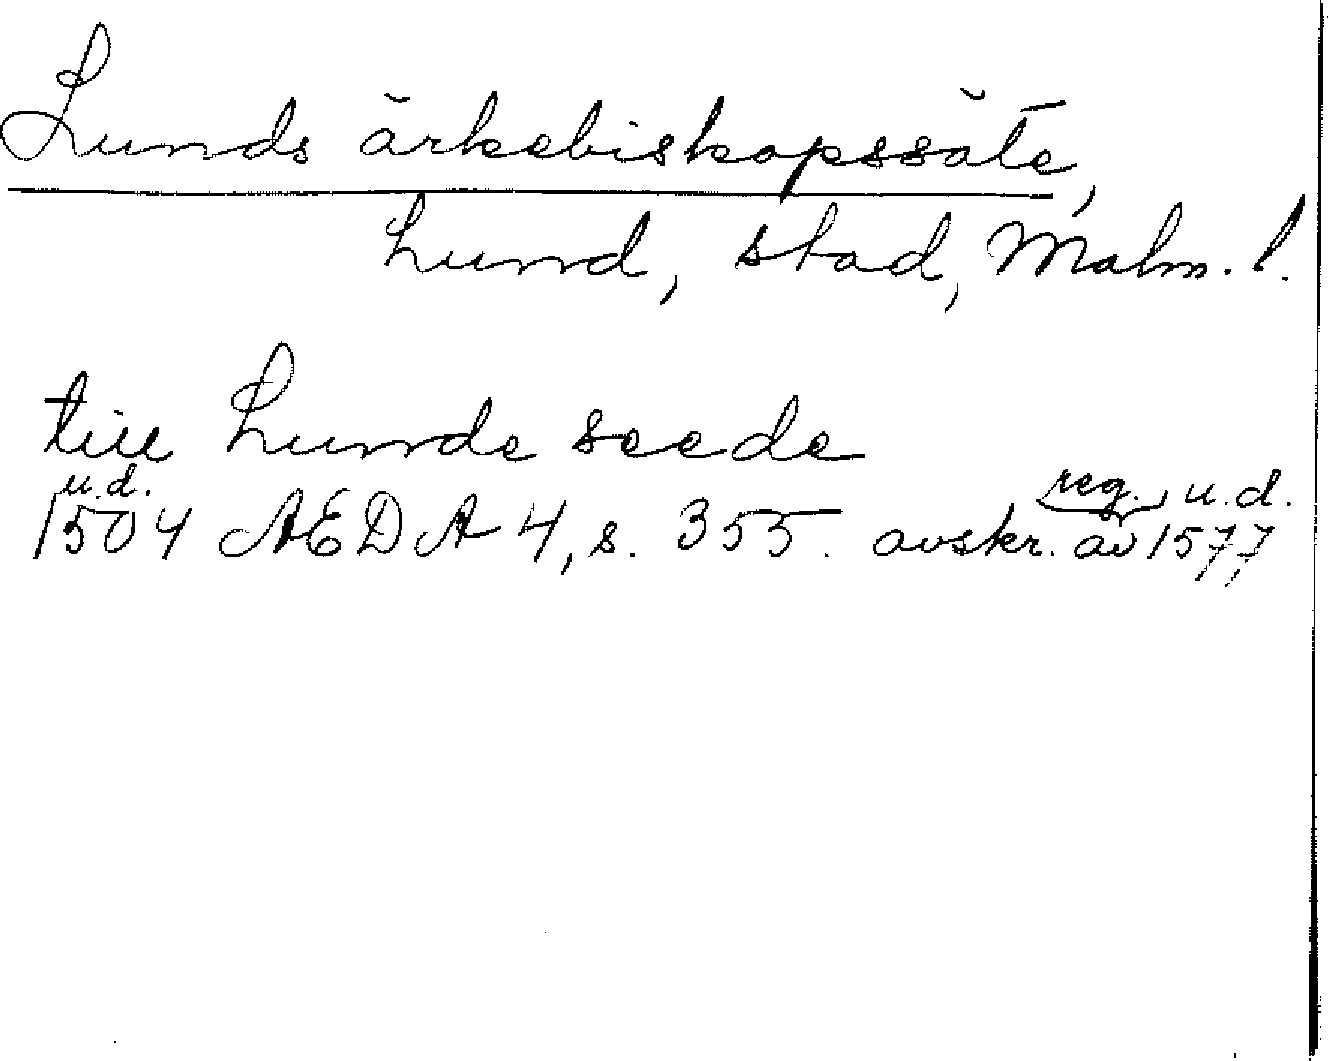 Lunds ärkebiskopssäte,
Lund, stad, Malm. l.
till Lunde seede
u.d. reg. u.d.
1504 AEDA 4, s. 355. avskr. av 1577